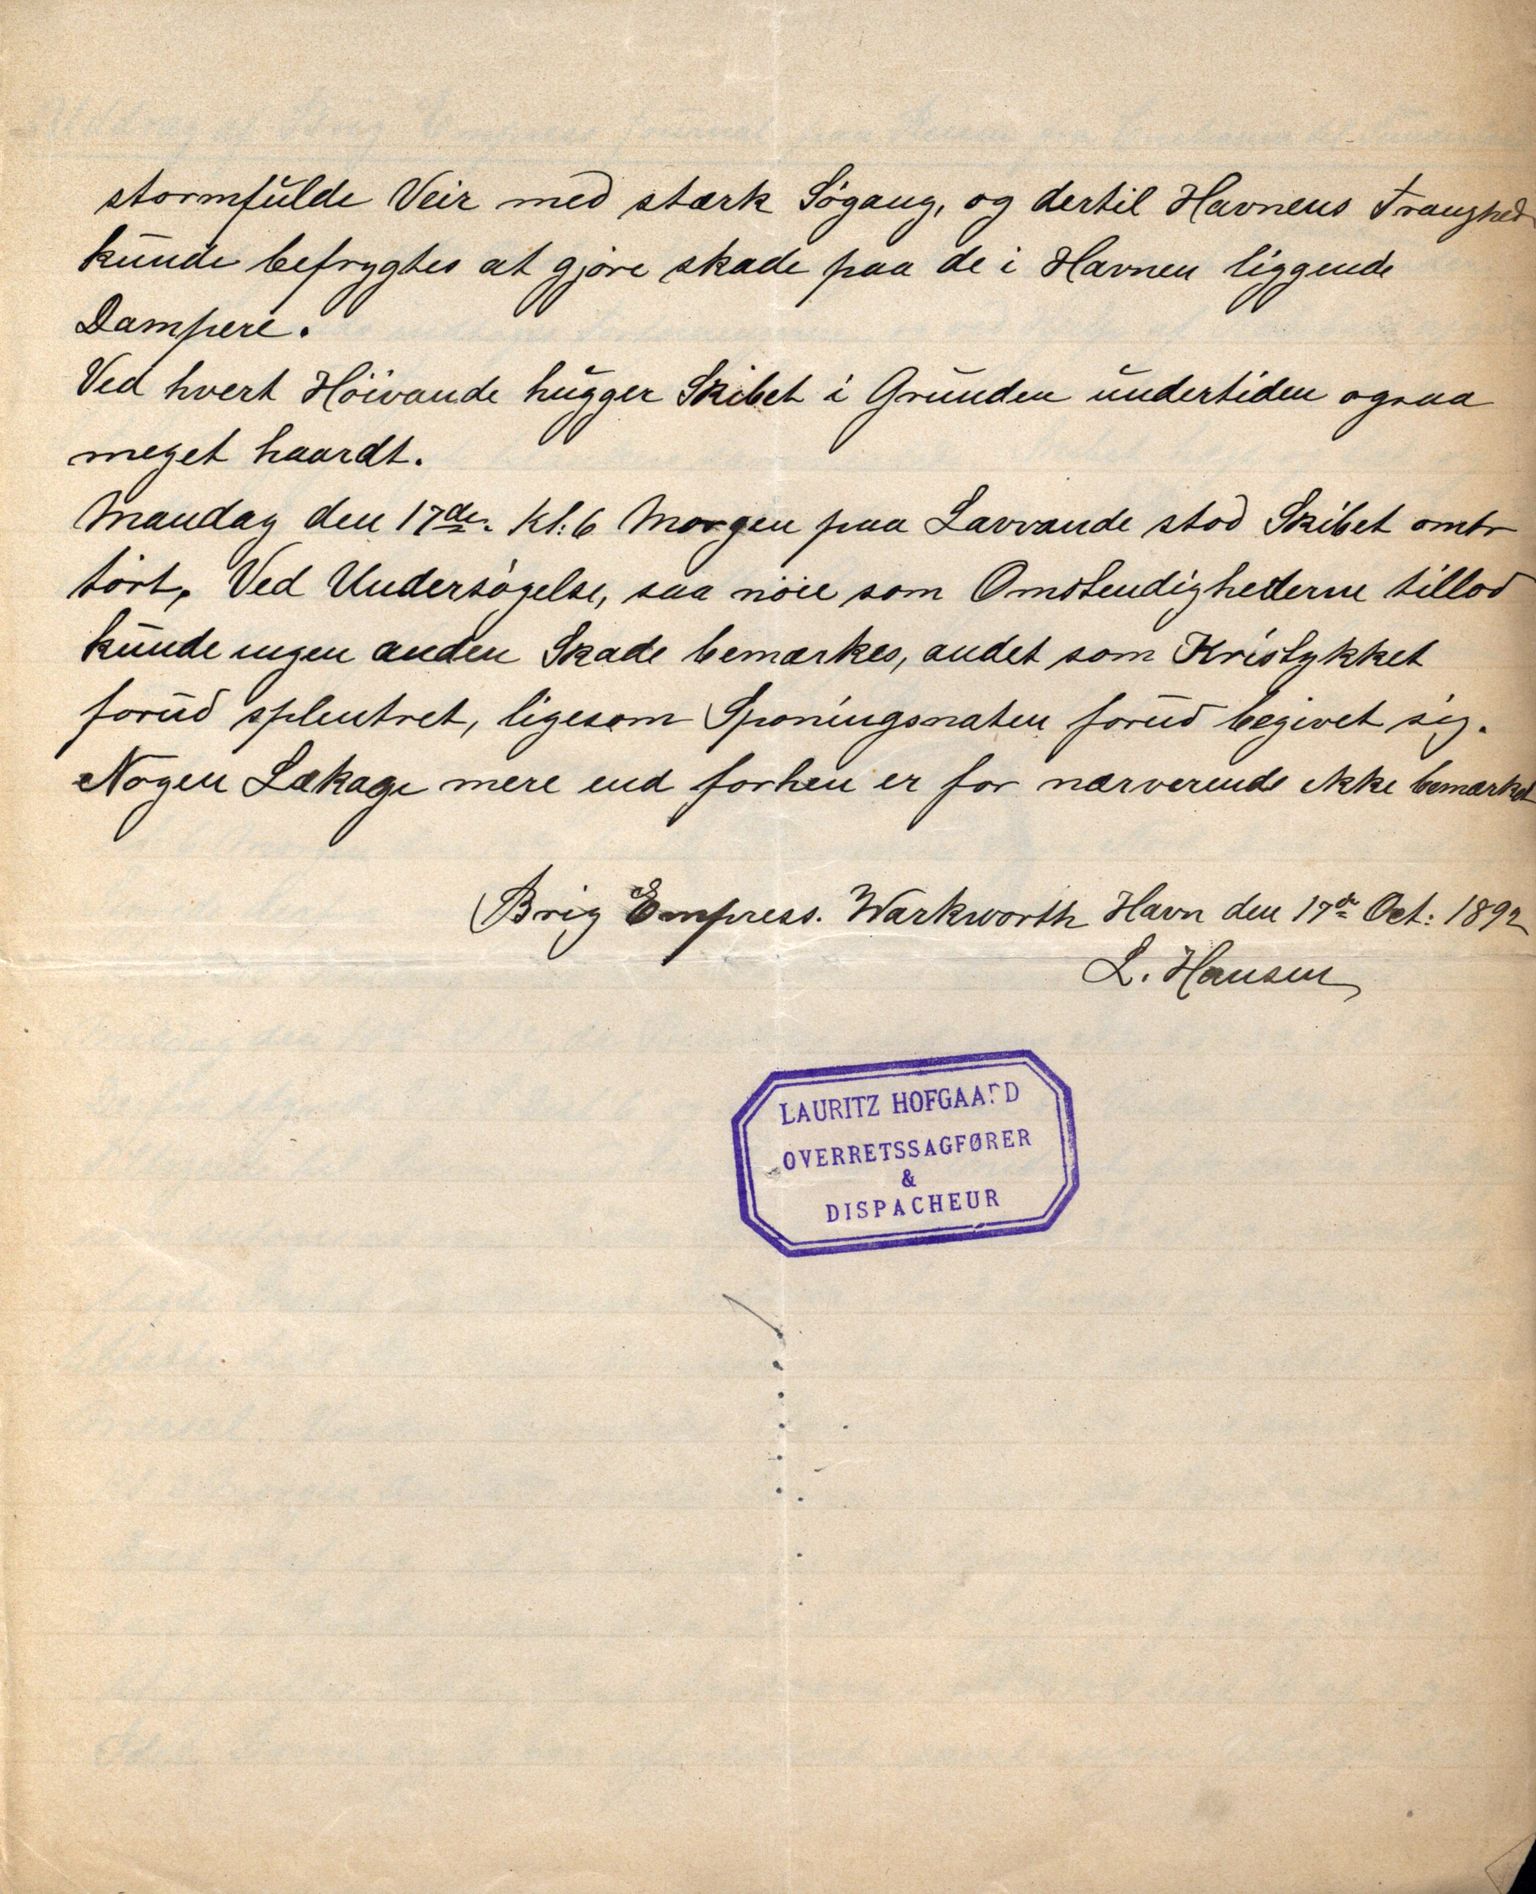 stormfulde Veir med stærk Søgang, og dertil Havnens Tranghed
kunde befrygtes at gjøre skade paa de i Havnen liggende
Dampere.
Ved hvert Høivande hugger Skibet i Grunden undertiden ogsaa
meget haardt.
Mandag den 17de. Kl: 6 Morgen paa Lavvande stod Skibet omtr
tørt. Ved Undersøgelse, saa nøie som Omstendighederne tillod
kunde ingen anden Skade bemærkes, andet som Kristykket
forud splentret, ligesom Sponingsnaten forud begivet sig.
Nogen Lækage mere end forhen er for nærverende ikke bemærket
Brig Empress. Warkworth Havn den 17de Oct: 1892
L. Hansen
LAURITZ HOFGAARD
OVERRETSSAGFØRER
&
DISPACHEUR